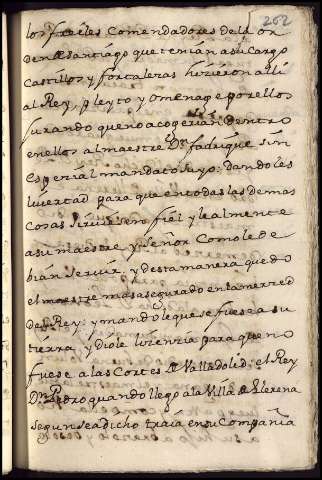 262
los freiles Comendadores dela or
den de Santiago que tenian a su Cargo
Castillos y fortalezas hizieron alli
al Rey, pleyto y omenage por ellos
jurando que no acogerian dentro
en ellos al maestre Dn fadrique sin
Espezial mandato suyo: Dandoles
livertad para que en todas las demas
Cosas sirviesen fiel y lealmente
a su maestre y señor Como le de
bian servir, y desta manera quedo
el maestre mas asegurado en la merced
del Rey: y mandole que se fuese a su
tierra, y diole lizenzia para que no
fuese a las Cortes de Valladolid: el Rey
Dn Pedro quando llego a la Villa de Llerena
segun se a dicho traia en su Compañia